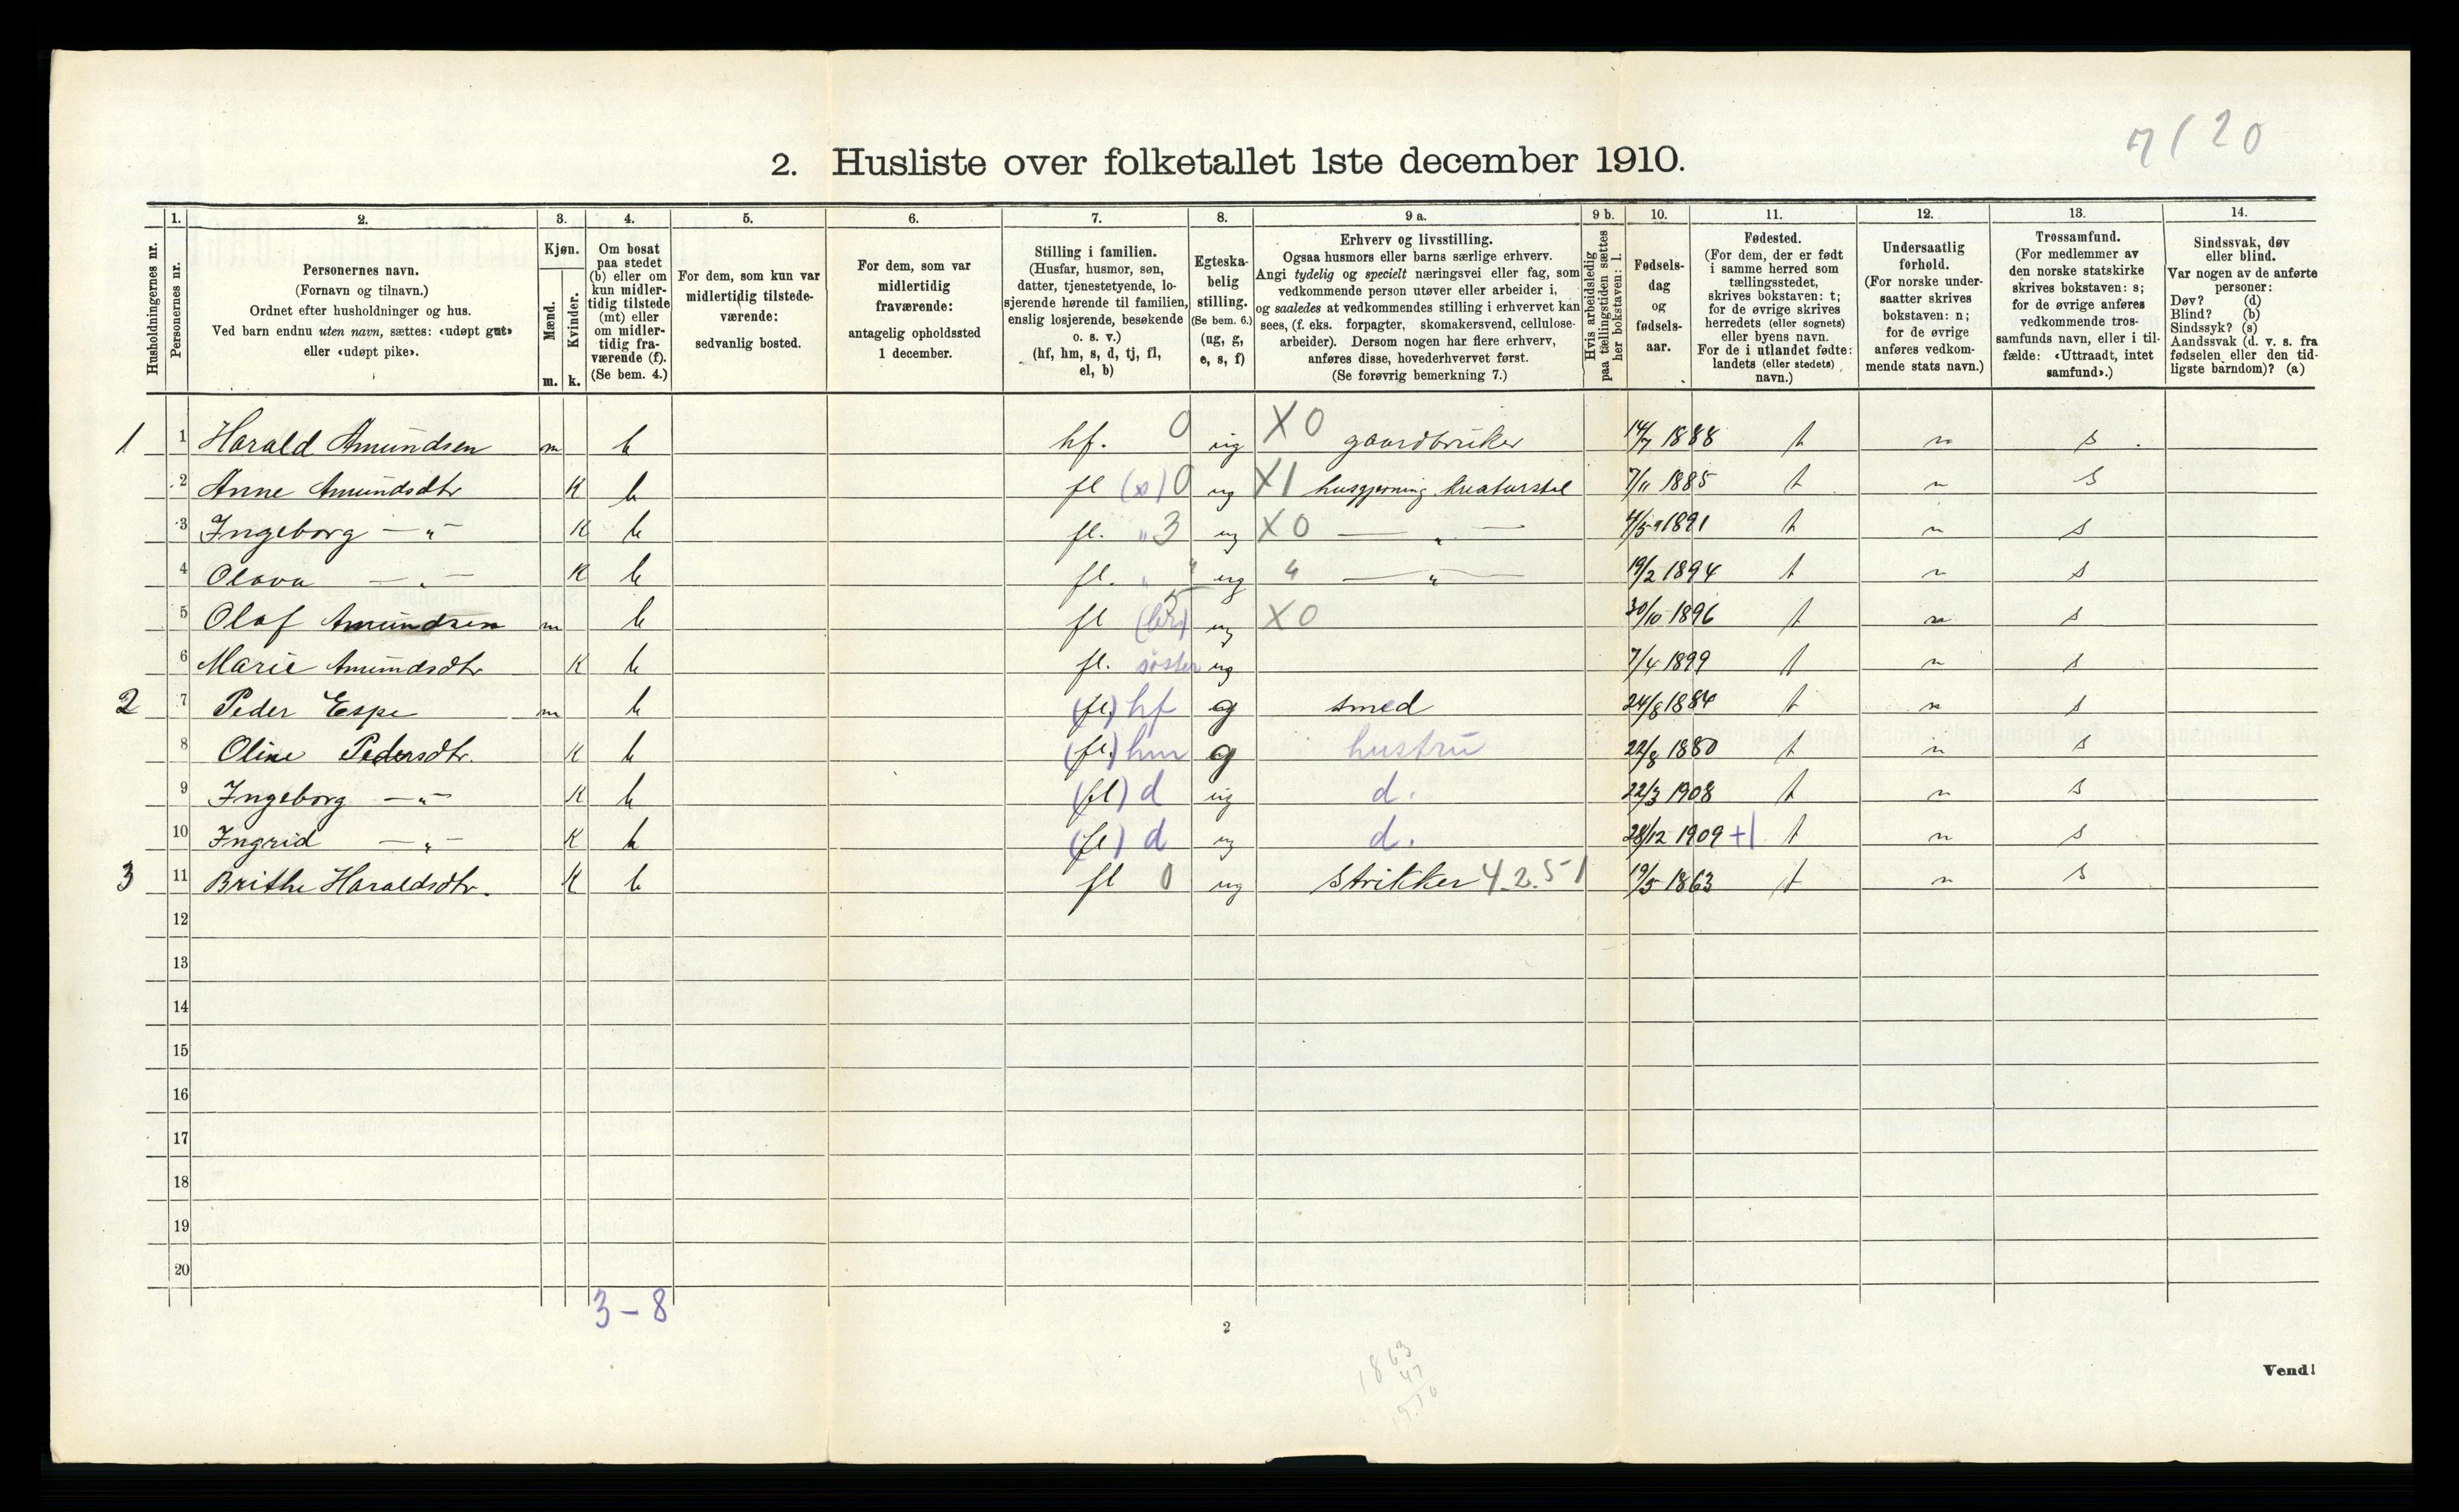 7/20
2. Husliste over folketallet 1ste december 1910.
Husholdningernes nr.
1.
Personernes nr.
2.
Personernes navn.
(Fornavn og tilnavn.)
Ordnet efter husholdninger og hus.
Ved barn endnu uten navn, sættes: «udøpt gut»
eller «udøpt pike».
3.
Kjøn.
Mænd.
Kvinder.
m. k.
4.
Om bosat
paa stedet
(b) eller om
kun midler-
tidig tilstede
(mt) eller
om midler-
tidig fra-
værende (f).
(Se bem. 4.)
5.
For dem, som kun var
midlertidig tilstede-
værende:
sedvanlig bosted.
6.
For dem, som var
midlertidig
fraværende:
antagelig opholdssted
1 december.
7.
Stilling i familien.
(Husfar, husmor, søn,
datter, tjenestetyende, lo-
sjerende hørende til familien,
enslig losjerende, besøkende
o. s. v.)
(hf, hm, s, d, tj, fl,
el, b)
8.
Egteska-
belig
stilling.
(Se bem. 6.)
(ug, g,
e, s, f)
9 a.
Erhverv og livsstilling.
Ogsaa husmors eller barns særlige erhverv.
Angi tydelig og specielt næringsvei eller fag, som
vedkommende person utøver eller arbeider i,
og saaledes at vedkommendes stilling i erhvervet kan
sees, (f. eks. forpagter, skomakersvend, cellulose-
arbeider). Dersom nogen har flere erhverv,
anføres disse, hovederhvervet først.
(Se forøvrig bemerkning 7.)
9 b.
Hvis arbeidsledig
paa tællingstiden sættes
her bokstaven: l.
10.
Fødsels-
dag
og
fødsels-
aar.
11.
Fødested.
(For dem, der er født
i samme herred som
tællingsstedet,
skrives bokstaven: t;
for de øvrige skrives
herredets (eller sognets)
eller byens navn.
For de i utlandet fødte:
landets (eller stedets)
navn.)
12.
Undersaatlig
forhold.
(For norske under-
saatter skrives
bokstaven: n;
for de øvrige
anføres vedkom-
mende stats navn.)
13.
Trossamfund.
(For medlemmer av
den norske statskirke
skrives bokstaven: s;
for de øvrige anføres
vedkommende tros-
samfunds navn, eller i til-
fælde: «Uttraadt, intet
samfund».)
14.
Sindssvak, døv
eller blind.
Var nogen av de anførte
personer:
Døv? (d)
Blind? (b)
Sindssyk? (s)
Aandssvak (d. v. s. fra
fødselen eller den tid-
ligste barndom)? (a)
1 1 Harald Amundsen m b hf. 0 ug X0 gaardbruker 14/7 1888 t n s
2 Anne Amundsdtr K b fl (s) 0 ug X1 husgjerning kreaturstel 7/11 1885 t n s
3 Ingeborg —"— K b fl. " 3 ug X0 —"— 4/5 1891 t n s
4 Olava —"— K b fl. " " ug " —"— 19/2 1894 t n s
5 Olaf Amundsen m b fl (br) 5 ug X0 30/10 1896 t n s
6 Marie Amundsdtr K b fl. søster ug 7/4 1899 t n s
2 7 Peder Espe m b (fl.) hf g smed 24/8 1884 t n s
8 Oline Pedersdtr. K b (fl.) hm g hustru 22/8 1880 t n s
9 Ingeborg —"— K b (fl) d ug d. 22/3 1908 t n s
10 Ingrid —"— K b (fl) d ug d. 28/12 1909 +1 t n s
3 11 Brithe Haraldsdtr. K b fl 0 ug Strikker 4.2.51 19/5 1863 t n s
12
13
14
15
16
17
18
19
20
3-8
2
1863
47
1910
Vend!